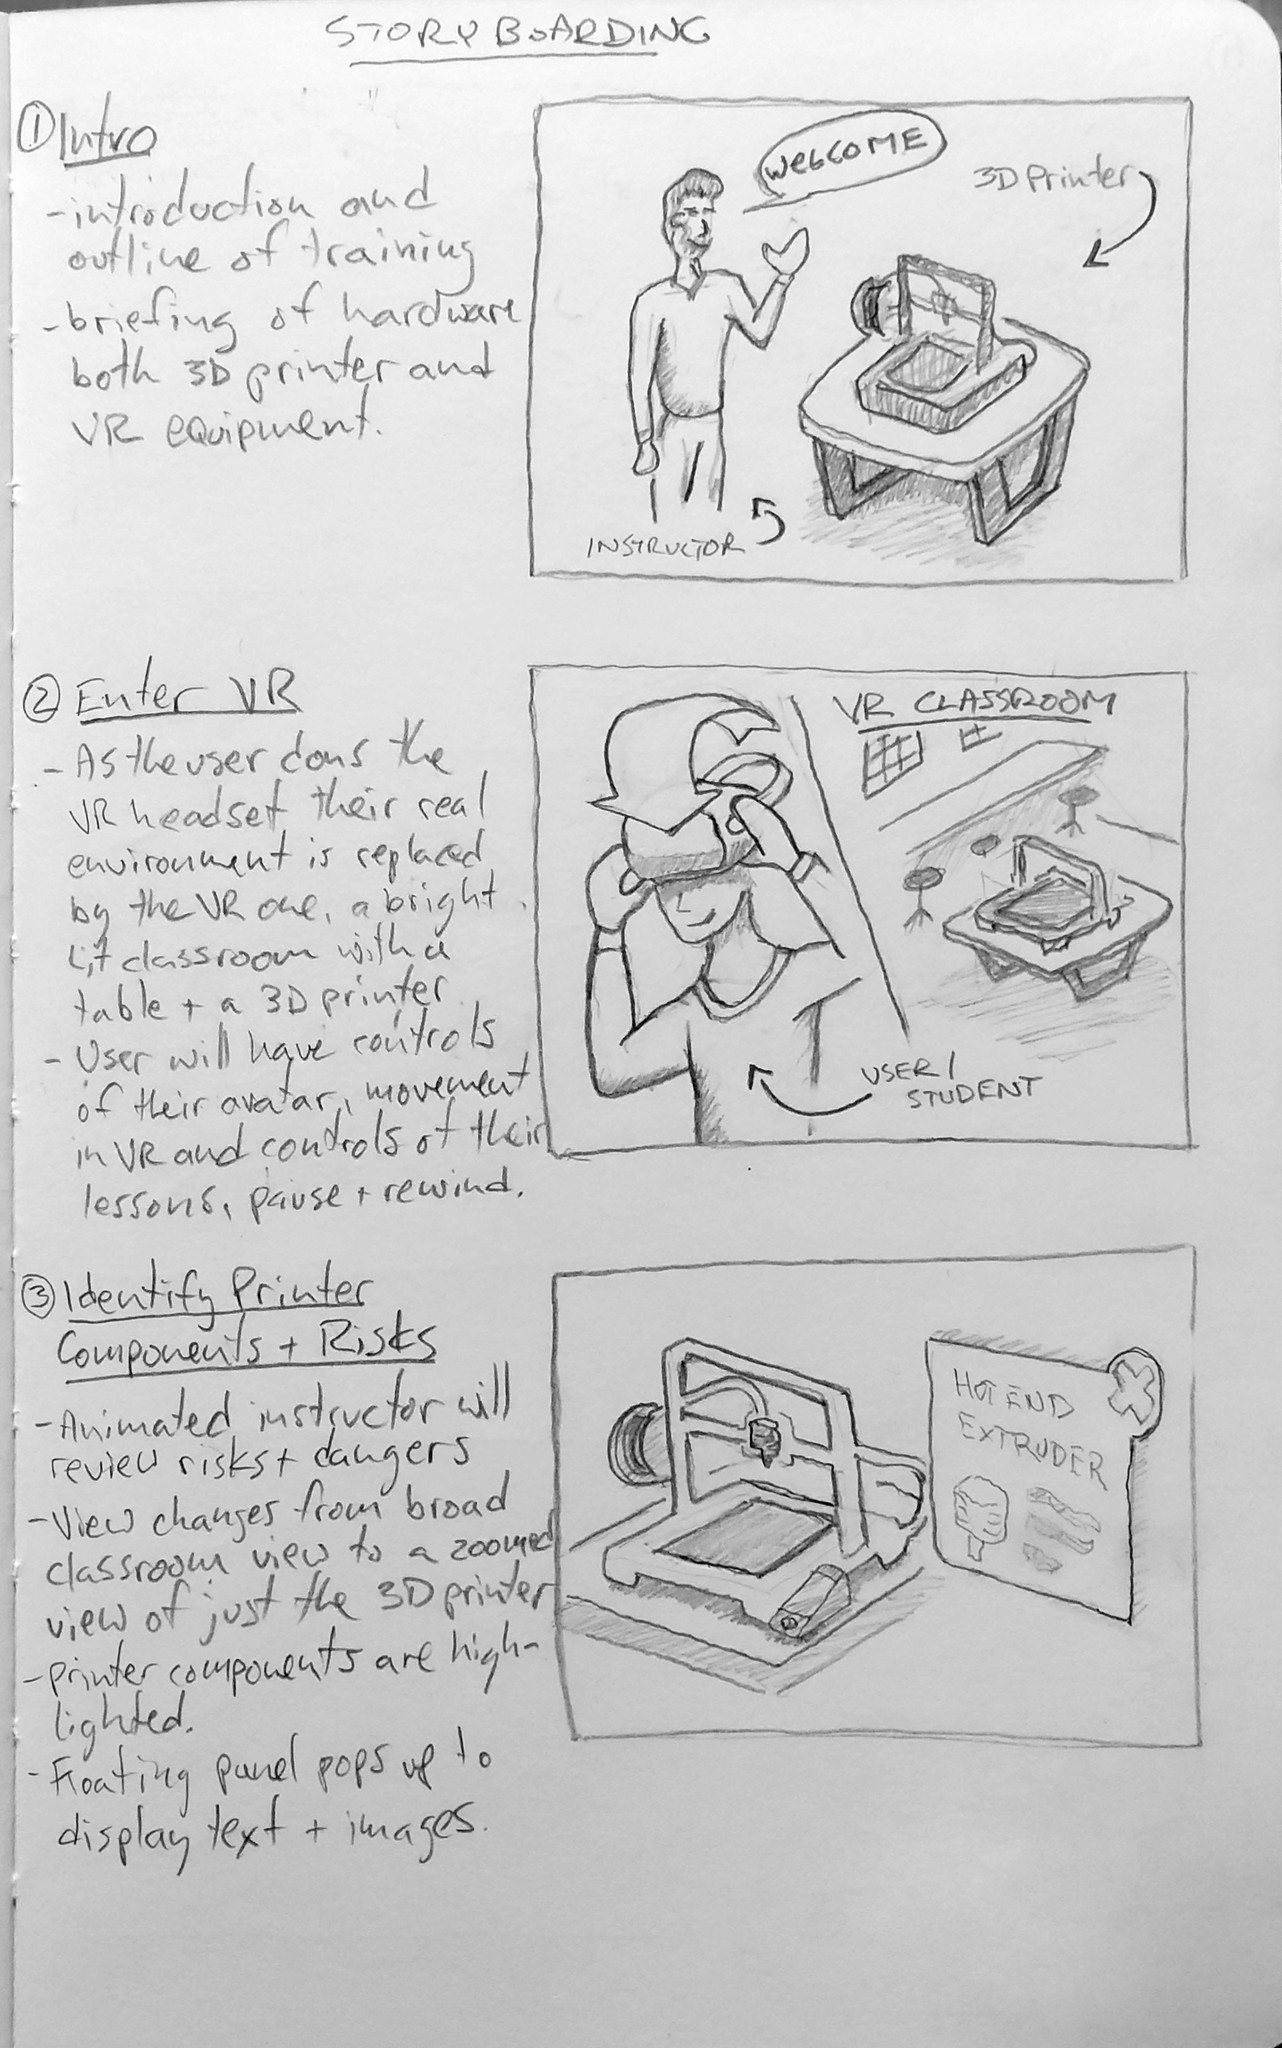 STORYBOARDING
① Intro
- introduction and
outline of training
- briefing of hardware
both 3D printer and
VR equipment.
WELCOME
3D Printer
INSTRUCTOR
② Enter VR
- As the user dons the
VR headset their real
environment is replaced
by the VR one, a bright
lit classroom with a
table + a 3D printer
- User will have controls
of their avatar, movement
in VR and controls of their
lessons, pause + rewind.
VR CLASSROOM
USER/
STUDENT
③ Identify Printer
Components + Risks
- Animated instructor will
review risks + dangers
- View changes from broad
classroom view to a zoomed
view of just the 3D printer
- printer components are high-
lighted.
- Floating panel pops up to
display text + images.
HOT END
EXTRUDER